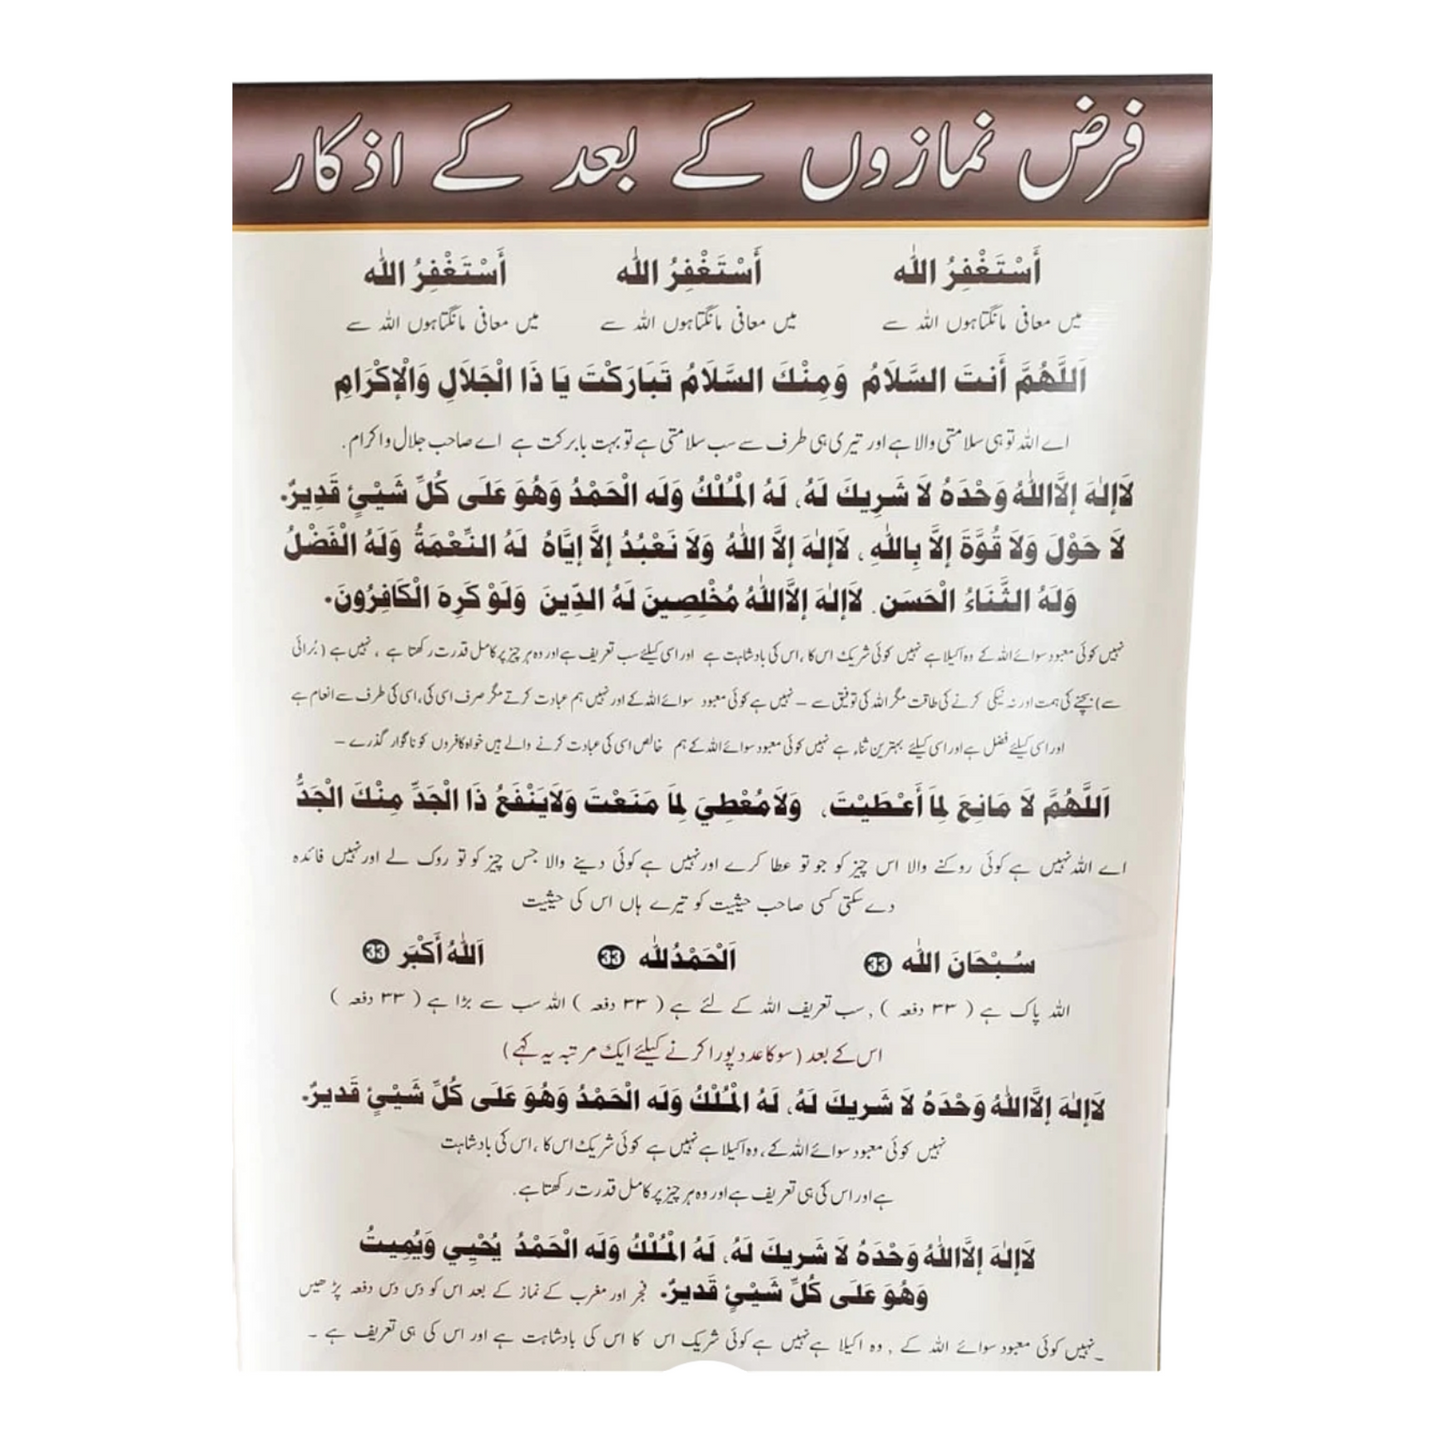 فرض نمازوں کے بعد کے اذکار
أَسْتَغْفِرُ اللّٰه أَسْتَغْفِرُ اللّٰه أَسْتَغْفِرُ اللّٰه
میں معافی مانگتاہوں اللہ سے میں معافی مانگتاہوں اللہ سے میں معافی مانگتاہوں اللہ سے
اَللَّهُمَّ أَنتَ السَّلَامُ وَمِنْكَ السَّلَامُ تَبَارَكْتَ يَا ذَا الْجَلَالِ وَالْإِكْرَامِ
اے اللہ تو ہی سلامتی والا ہے اور تیری ہی طرف سے سب سلامتی ہے تو بہت بابرکت ہے اے صاحب جلال واکرام .
لَاإِلٰهَ إِلَّااللّٰهُ وَحْدَهُ لَا شَرِيكَ لَهُ، لَهُ الْمُلْكُ وَلَه الْحَمْدُ وَهُوَ عَلَى كُلِّ شَيْئٍ قَدِيرٌ۔
لَا حَوْلَ وَلَا قُوَّةَ إِلَّا بِاللّٰهِ ، لَاإِلٰهَ إِلَّا اللّٰهُ وَلَا نَعْبُدُ إِلَّا إِيَّاهُ لَهُ النِّعْمَةُ وَلَهُ الْفَضْلُ
وَلَهُ الثَّنَاءُ الْحَسَن. لَاإِلٰهَ إِلَّااللّٰهُ مُخْلِصِينَ لَهُ الدِّينَ وَلَوْ كَرِهَ الْكَافِرُونَ۔
نہیں کوئی معبود سوائے اللہ کے وہ اکیلا ہے نہیں کوئی شریک اس کا ،اس کی بادشاہت ہے اور اسی کیلئے سب تعریف ہے اور وہ ہر چیز پر کامل قدرت رکھتا ہے ، نہیں ہے ( بُرائی
سے) بچنے کی ہمت اور نہ نیکی کرنے کی طاقت مگر اللہ کی توفیق سے – نہیں ہے کوئی معبود سوائے اللہ کے اور نہیں ہم عبادت کرتے مگر صرف اسی کی، اسی کی طرف سے انعام ہے
اور اسی کیلئے فضل ہے اور اسی کیلئے بہترین ثناء ہے نہیں کوئی معبود سوائے اللہ کے ہم خالص اسی کی عبادت کرنے والے ہیں خواہ کافروں کو ناگوار گذرے –
اَللَّهُمَّ لَا مَانِعَ لِمَا أَعْطَيْتَ، وَلَامُعْطِيَ لِمَا مَنَعْتَ وَلَايَنْفَعُ ذَا الْجَدِّ مِنْكَ الْجَدُّ
اے اللہ نہیں ہے کوئی روکنے والا اس چیز کو جو تو عطا کرے اور نہیں ہے کوئی دینے والا جس چیز کو تو روک لے اور نہیں فائدہ
دے سکتی کسی صاحب حیثیت کو تیرے ہاں اس کی حیثیت
سُبْحَانَ اللّٰه 33 اَلْحَمْدُ للّٰه 33 اَللّٰهُ أَكْبَر 33
اللہ پاک ہے ( ۳۳ دفعہ ) , سب تعریف اللہ کے لئے ہے ( ۳۳ دفعہ ) اللہ سب سے بڑا ہے ( ۳۳ دفعہ )
اس کے بعد ( سو کا عدد پورا کرنے کیلئے ایک مرتبہ یہ کہے )
لَاإِلٰهَ إِلَّااللّٰهُ وَحْدَهُ لَا شَرِيكَ لَهُ، لَهُ الْمُلْكُ وَلَه الْحَمْدُ وَهُوَ عَلَى كُلِّ شَيْئٍ قَدِيرٌ۔
نہیں کوئی معبود سوائے اللہ کے ، وہ اکیلا ہے نہیں ہے کوئی شریک اس کا ، اس کی بادشاہت
ہے اور اس کی ہی تعریف ہے اور وہ ہر چیز پر کامل قدرت رکھتا ہے .
لَاإِلٰهَ إِلَّااللّٰهُ وَحْدَهُ لَا شَرِيكَ لَهُ، لَهُ الْمُلْكُ وَلَه الْحَمْدُ يُحْيِي وَيُمِيتُ
وَهُوَ عَلَى كُلِّ شَيْئٍ قَدِيرٌ۔ فجر اور مغرب کے نماز کے بعد اس کو دس دس دفعہ پڑھیں
نہیں کوئی معبود سوائے اللہ کے , وہ اکیلا ہے نہیں ہے کوئی شریک اس کا اس کی بادشاہت ہے اور اس کی ہی تعریف ہے ۔